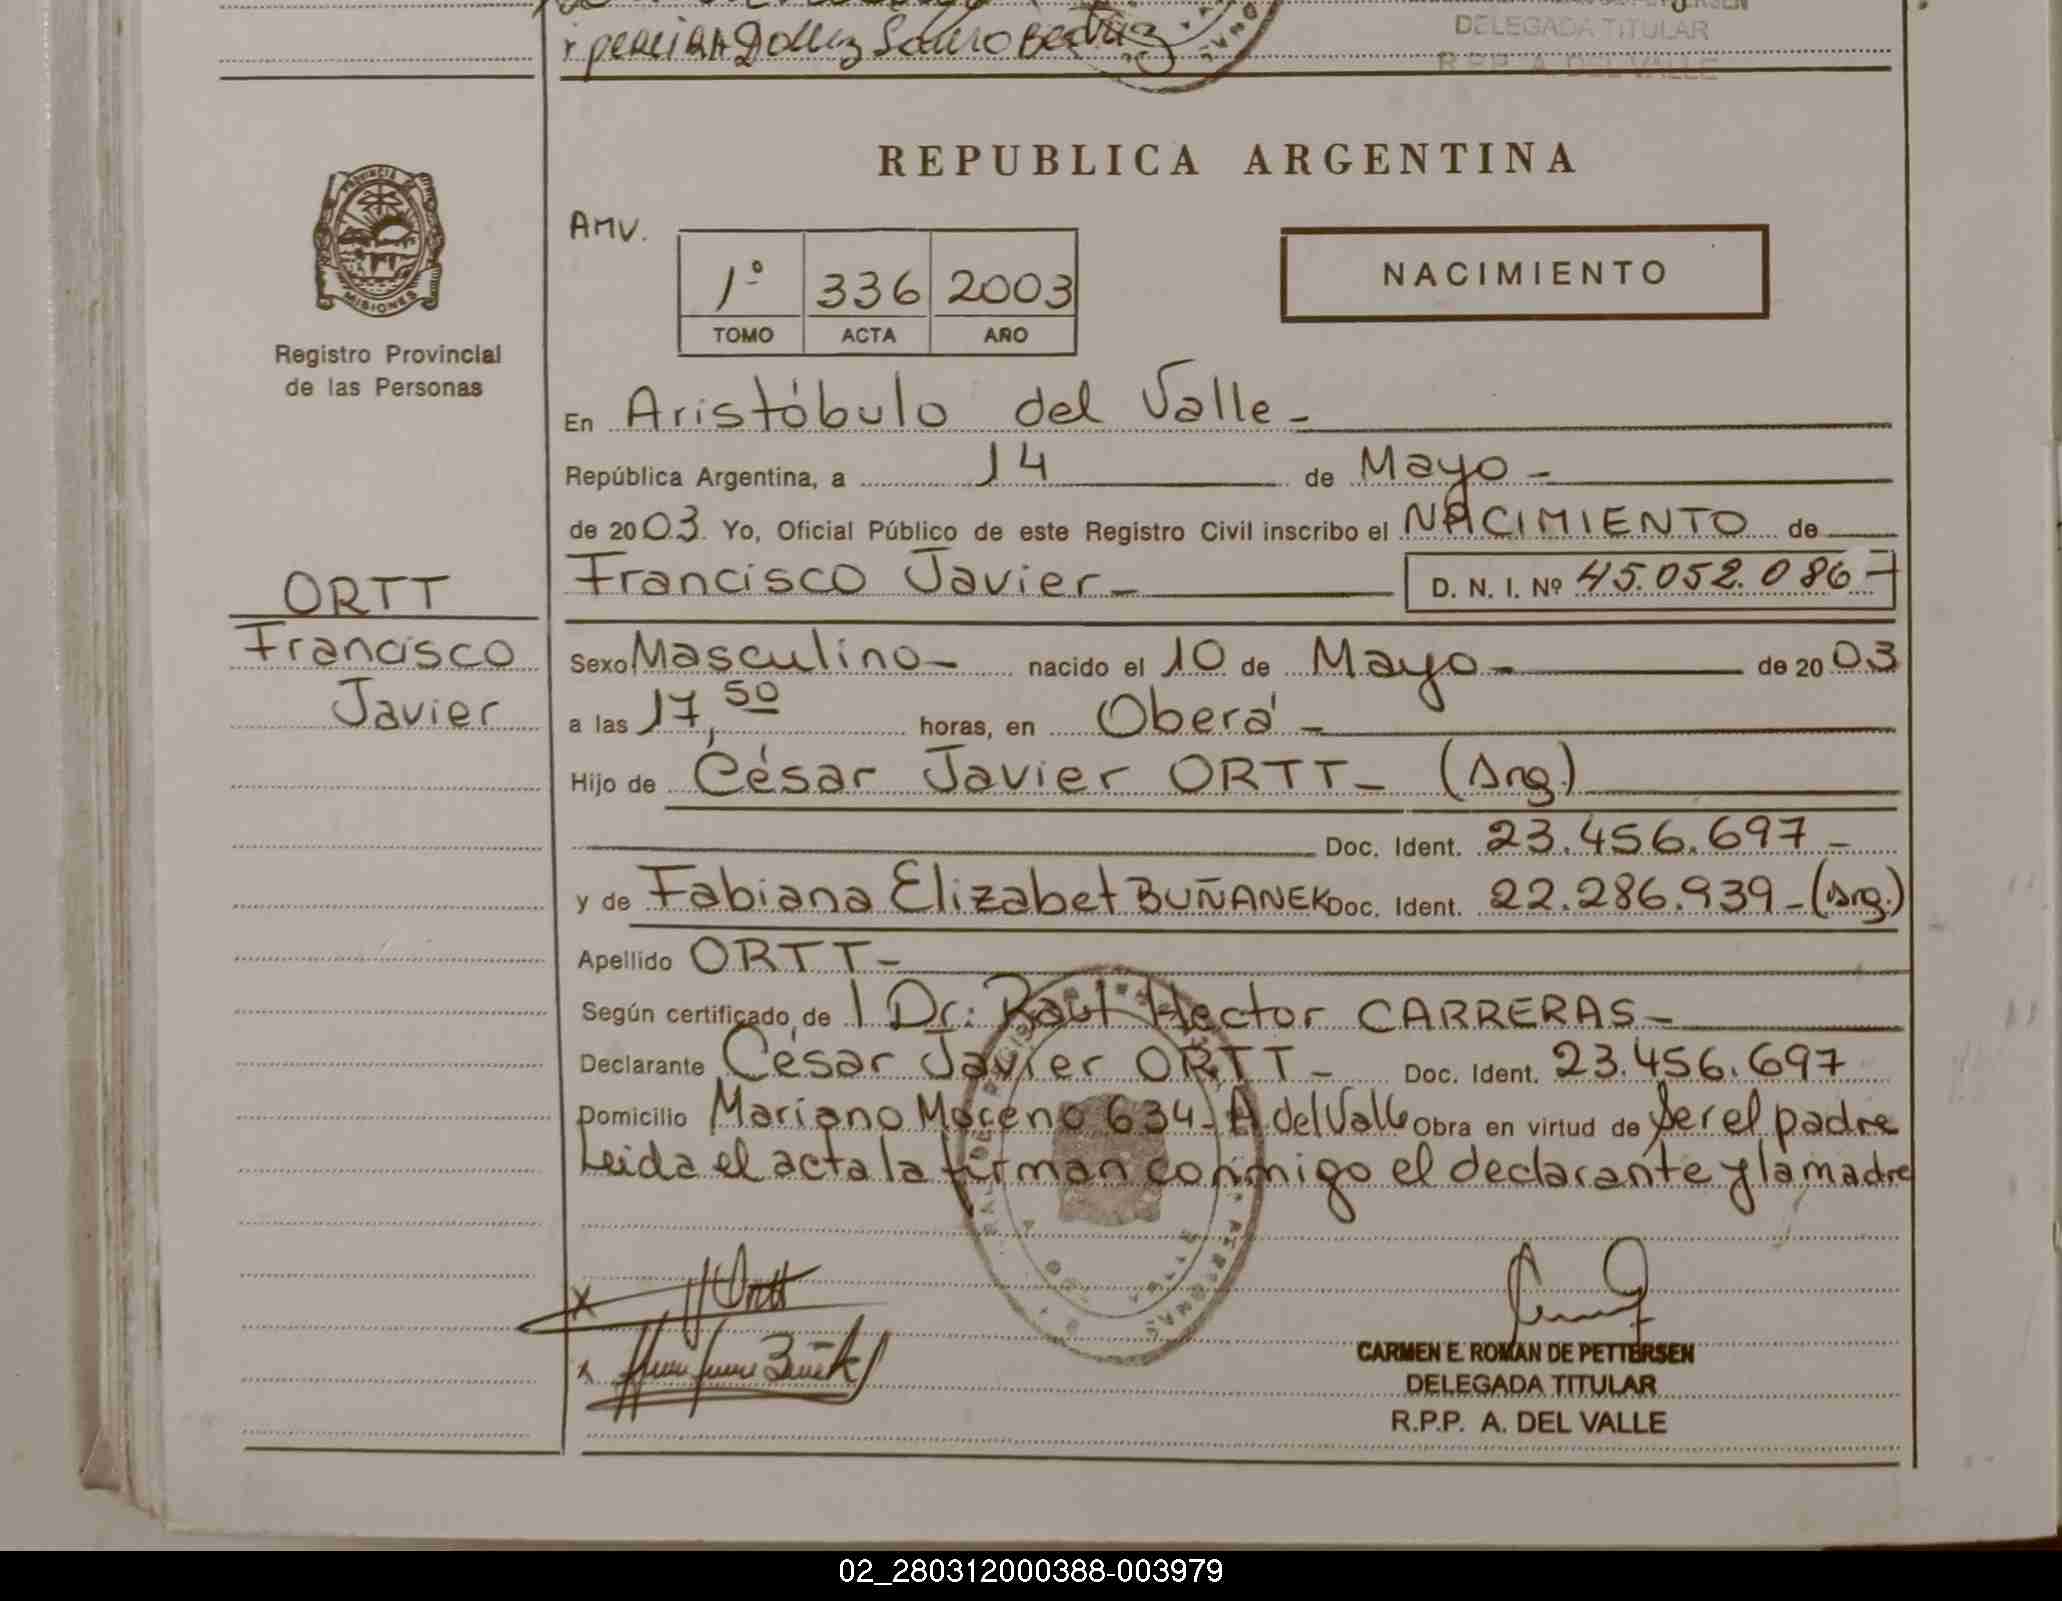 PEREIRA
DELEGADA TITULAR
R.P.P. A. DEL VALLE
REPUBLICA ARGENTINA
PROVINCIA DE
MISIONES
Registro Provincial
de las Personas
AMV.
1º 336 2003
TOMO ACTA AÑO
NACIMIENTO
En Aristóbulo del Valle -
República Argentina, a 14 de Mayo -
de 2003. Yo, Oficial Público de este Registro Civil inscribo el NACIMIENTO de
Francisco Javier - D. N. I. Nº 45.052.086 -
ORTT
Francisco
Javier
Sexo Masculino - nacido el 10 de Mayo - de 2003
a las 17,50 horas, en Oberá -
Hijo de César Javier ORTT - (Arg.)
Doc. Ident. 23.456.697 -
y de Fabiana Elizabet BUÑANEK Doc. Ident. 22.286.939 - (Arg.)
Apellido ORTT -
Según certificado de l Dr: Raul Hector CARRERAS -
Declarante César Javier ORTT - Doc. Ident. 23.456.697
Domicilio Mariano Moreno 634 - A del Valle Obra en virtud de ser el padre
Leida el acta la firman conmigo el declarante y la madre
x Ortt
x
CARMEN E. ROMAN DE PETTERSEN
DELEGADA TITULAR
R.P.P. A. DEL VALLE
02_280312000388-003979